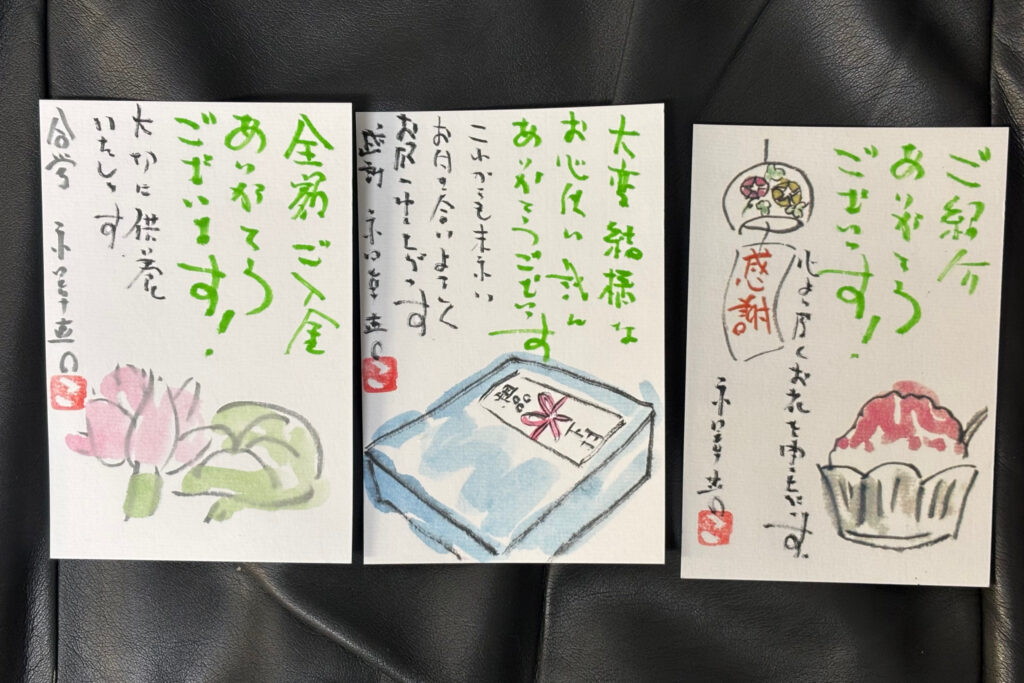 全額ご入金
ありがとう
ございます!
大切に供養
いたします
合掌
大変結構な
お心使い
ありがとうございます
これからも末永い
お付き合いよろしく
お願い申し上げます
感謝
ご紹介
ありがとう
ございます!
心より厚くお礼を申し上げます。
感謝。